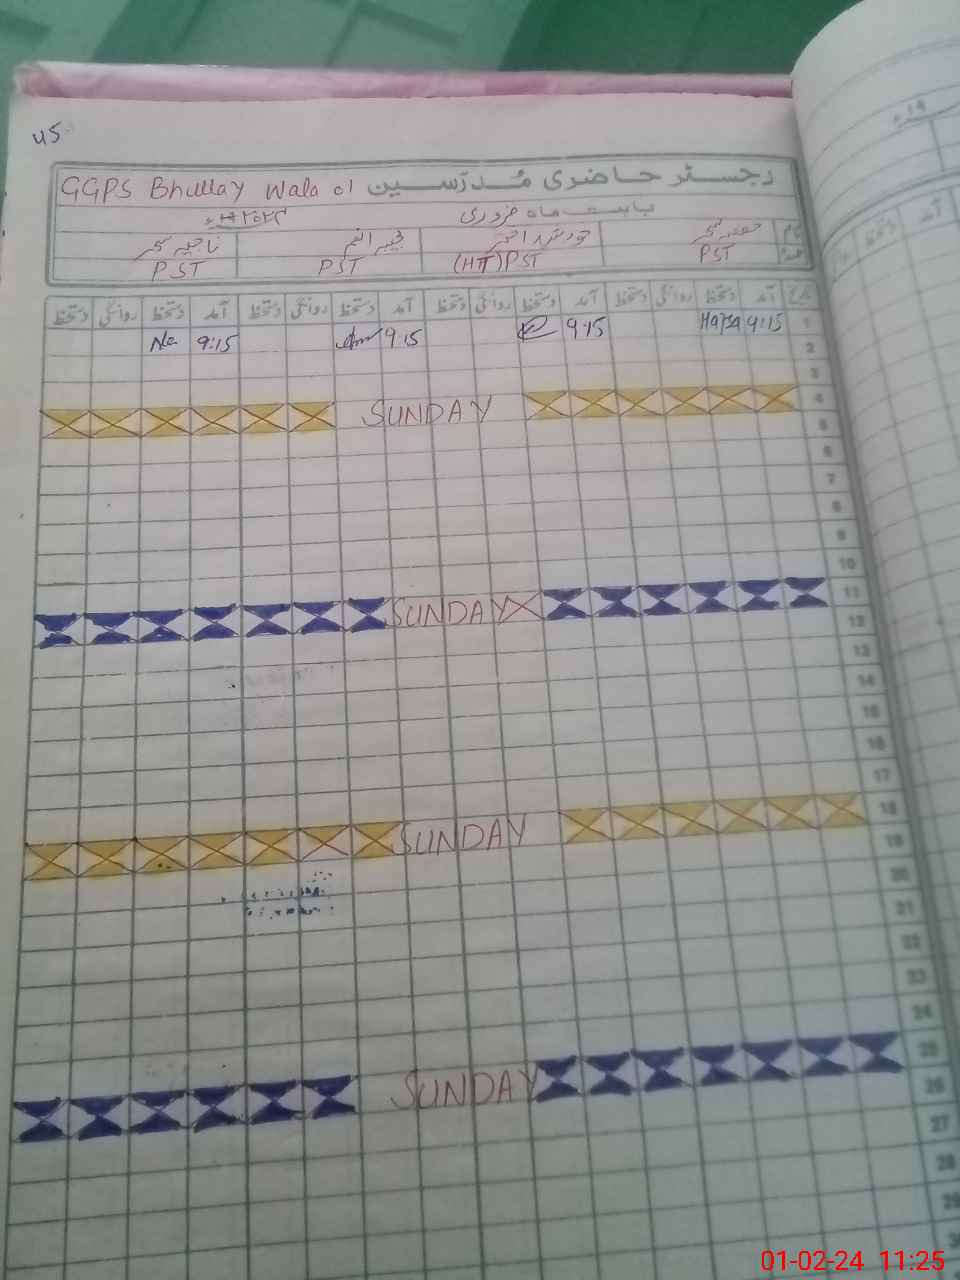 45
رجسٹر حاضری مُدرّسین GGPS Bhullay Wala 01
بابت ماہ فروری ۲۰۲۴ء
نام
PST (HT) PST PST PST
تاریخ آمد دستخط روانگی دستخط آمد دستخط روانگی دستخط آمد دستخط روانگی دستخط آمد دستخط روانگی دستخط
1 9:15 Hafsa 9:15 9:15 9:15
2
3
4 SUNDAY
5
6
7
8
9
10
11 SUNDAY
12
13
14
15
16
17
18 SUNDAY
19
20
21
22
23
24
25 SUNDAY
26
27
28
29
01-02-24 11:25